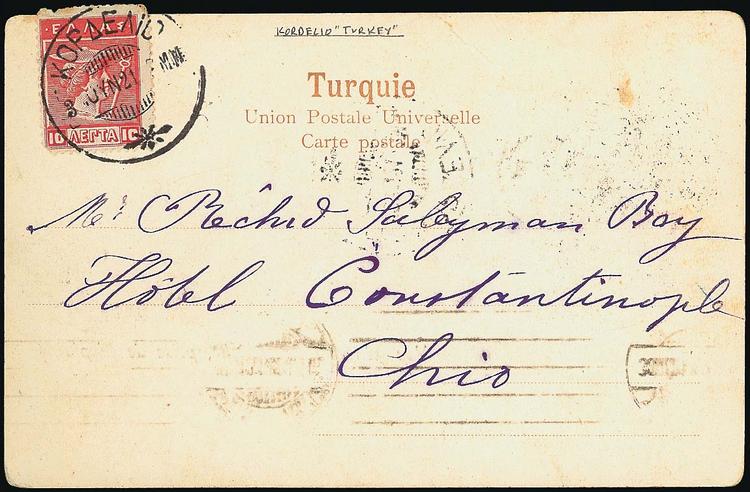 KORDELIO "TURKEY"
ΕΛΛΑΣ
ΚΟΡΔΕΛΙΟ
3 ΙΟΥΝ 21
10 ΛΕΠΤΑ 10
Turquie
Union Postale Universelle
Carte postale
Mr Réchid Suleyman Bey
Hôtel Constantinople
Chio